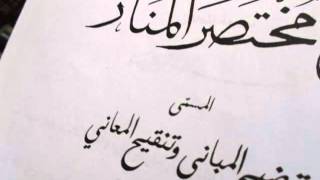 مختصر المنار
المسمى
توضيح المباني وتنقيح المعاني